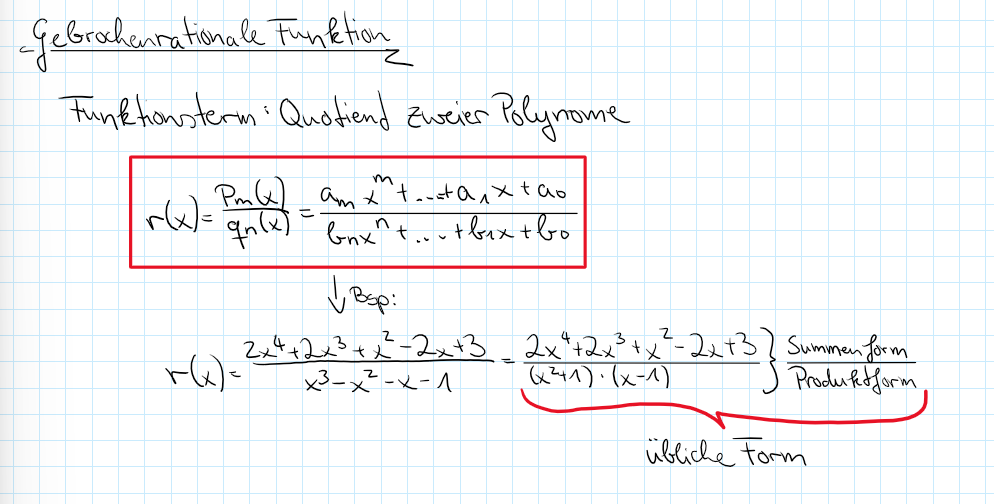 Gebrochenrationale Funktion
Funktionsterm: Quotiend zweier Polynome
r(x) = pₘ(x)/qₙ(x) = (aₘxᵐ + ... + a₁x + a₀)/(bₙxⁿ + ... + b₁x + b₀)
↓ Bsp:
r(x) = (2x⁴+2x³+x²-2x+3)/(x³-x²-x-1) = (2x⁴+2x³+x²-2x+3)/((x²+1)·(x-1)) } Summenform/Produktform
übliche Form